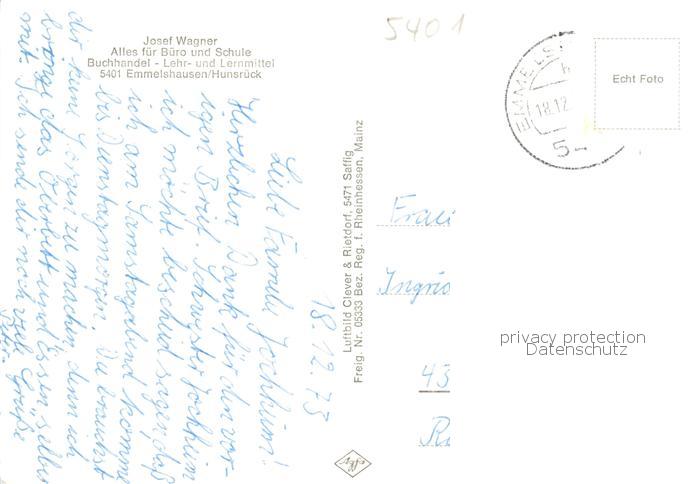 5401
Josef Wagner
Alles für Büro und Schule
Buchhandel - Lehr- und Lernmittel
5401 Emmelshausen/Hunsrück
Echt Foto
EMMELS
18.12
5-
18.12.73
Liebe Familie Jochheim!
Herzlichen Dank für den vor-
igen Brief. Schwester Jochheim
ich möchte bescheid sagen, daß
ich am Samstagabend komme
bis Dienstagmorgen. Du brauchst
dir keine Sorgen zu machen, denn ich
bringe das Oberbett und Kissen selbst
mit. Ich sende dir noch viele Grüße
Luftbild Clever & Rietdorf, 5471 Saffig
Freig. Nr. 05333 Bez. Reg. f. Rheinhessen, Mainz
Frau
Ingrid
43
Agfa
privacy protection
Datenschutz